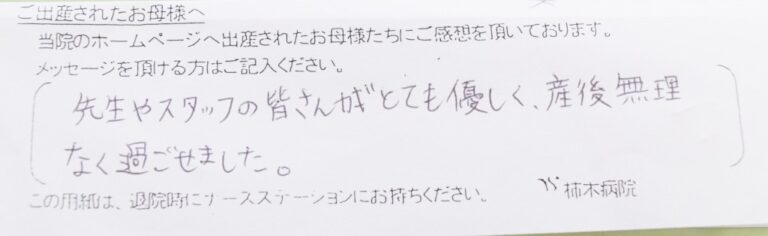 ご出産されたお母様へ
当院のホームページへ出産されたお母様たちにご感想を頂いております。
メッセージを頂ける方はご記入ください。
先生やスタッフの皆さんがとても優しく、産後無理
なく過ごせました。
この用紙は、退院時にナースステーションにお持ちください。 柿木病院